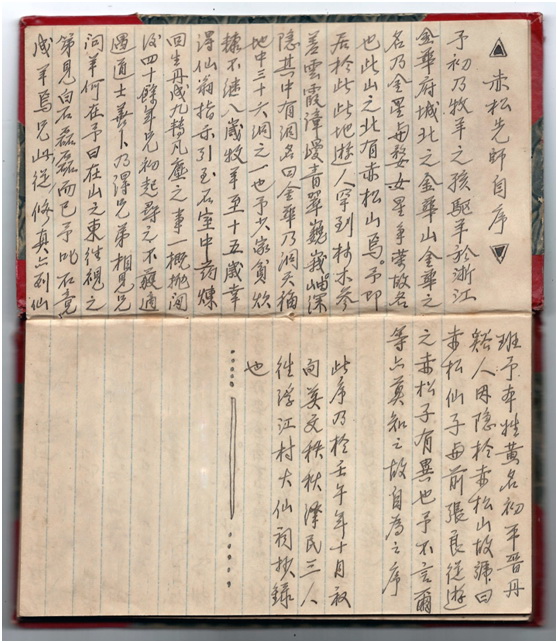 ▲赤松先師自序▼
予初乃牧羊之孩驅羊於浙江
金華府城北之金華山金華之
名乃金星與婺女星爭華故名
也此山之北有赤松山焉。予即
居於此此地遊人罕到林木參
差雲霞障靉青翠巍峨岫深
隱其中有洞名曰金華乃洞天福
地中三十六洞之一也予少家貧炊
糠不继八歲牧羊至十五歲幸
得仙翁指示引至石室中药煉
回生丹成九轉凡塵之事一概拋開
後四十餘年兄初起尋之不獲適
遇道士善卜乃得兄弟相見兄
问羊何在予曰在山之東往視之
第見白石磊磊而已予叱石竟
成羊焉兄此從修真亦列仙
班予本姓黄名初平晉丹
谿人因隐於赤松山故號曰
赤松仙子與前張良從遊
之赤松子有異也予不言爾
等亦莫知之故自為之序
此序乃於壬午年十月初
向英文秩秋澤民三人
往浮江村大仙祠抄錄
也